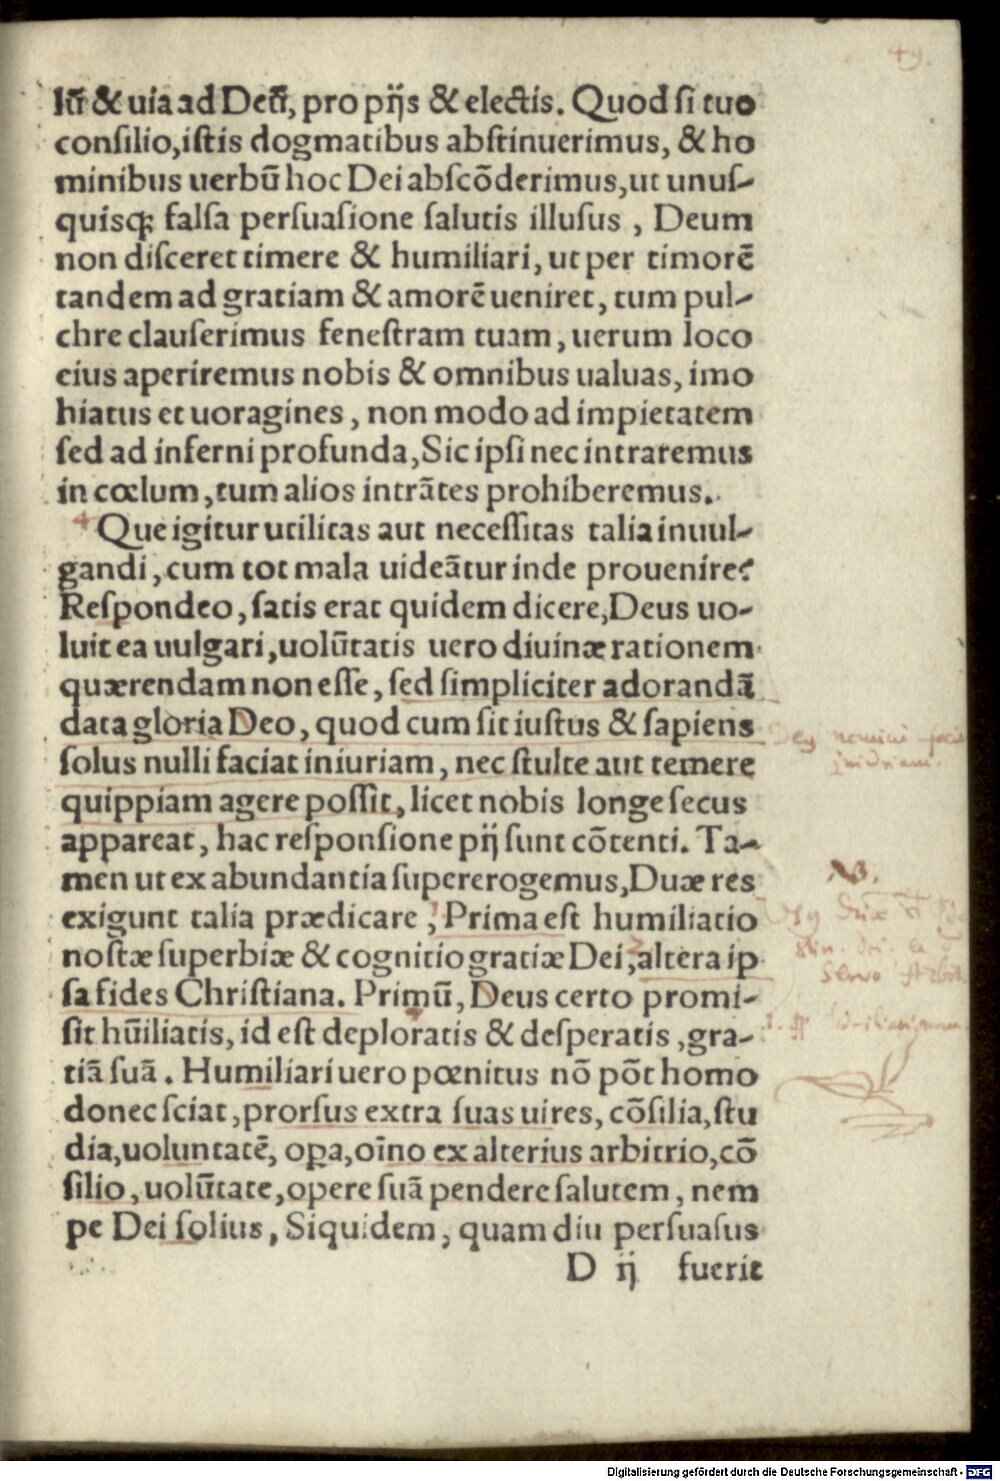 49.
Itr̃ & uia ad Deũ, pro pijs & electis. Quod si tuo
consilio, istis dogmatibus abstinuerimus, & ho
minibus uerbũ hoc Dei abscõderimus, ut unus-
quisq; falsa persuasione salutis illusus , Deum
non disceret timere & humiliari, ut per timorẽ
tandem ad gratiam & amorẽ ueniret, tum pul-
chre clauserimus fenestram tuam, uerum loco
eius aperiremus nobis & omnibus ualuas, imo
hiatus et uoragines , non modo ad impietatem
sed ad inferni profunda, Sic ipsi nec intraremus
in cœlum, tum alios intrãtes prohiberemus.
4 Que igitur utilitas aut necessitas talia inuul-
gandi, cum tot mala uideãtur inde prouenire?
Respondeo, satis erat quidem dicere, Deus uo-
luit ea uulgari, uolũtatis uero diuinæ rationem
quærendam non esse, sed simpliciter adorandã
data gloria Deo, quod cum sit iustus & sapiens
solus nulli faciat iniuriam, nec stulte aut temere
quippiam agere possit, licet nobis longe secus
appareat, hac responsione pij sunt cõtenti. Ta-
men ut ex abundantia supererogemus, Duæ res
exigunt talia prædicare, Prima est humiliatio
nostæ superbiæ & cognitio gratiæ Dei, altera ip
sa fides Christiana. Primũ, Deus certo promi-
sit hũiliatis, id est deploratis & desperatis , gra-
tiã suã. Humiliari uero pœnitus nõ põt homo
donec sciat, prorsus extra suas uires, cõsilia, stu
dia, uoluntatẽ, oꝑa, oĩno ex alterius arbitrio, cõ
silio, uolũtate, opere suã pendere salutem, nem
pe Dei solius, Siquidem, quam diu persuasus
D ij fuerit
NB.
Digitalisierung gefördert durch die Deutsche Forschungsgemeinschaft - DFG